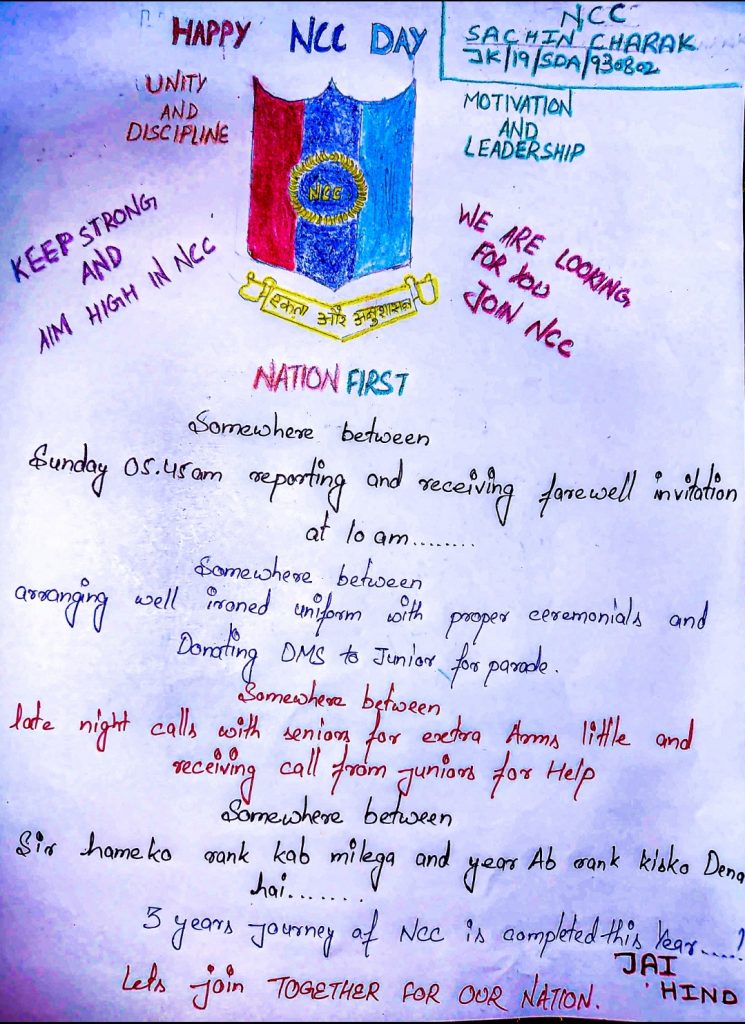 HAPPY NCC DAY
NCC
SACHIN CHARAK
JK/19/SDA/930802
UNITY
AND
DISCIPLINE
MOTIVATION
AND
LEADERSHIP
NCC
KEEP STRONG
AND
AIM HIGH IN NCC
WE ARE LOOKING
FOR YOU
JOIN NCC
एकता और अनुशासन
NATION FIRST
Somewhere between
Sunday 05.45am reporting and receiving farewell invitation
at 10 am........
Somewhere between
arranging well ironed uniform with proper ceremonials and
Donating DMS to Junior for parade.
Somewhere between
late night calls with seniors for extra Arms little and
receiving call from juniors for Help
Somewhere between
Sir hameko rank kab milega and year Ab rank kisko Dena
hai.......
3 years journey of NCC is completed this Year.....!
JAI
HIND
Lets join TOGETHER FOR OUR NATION.